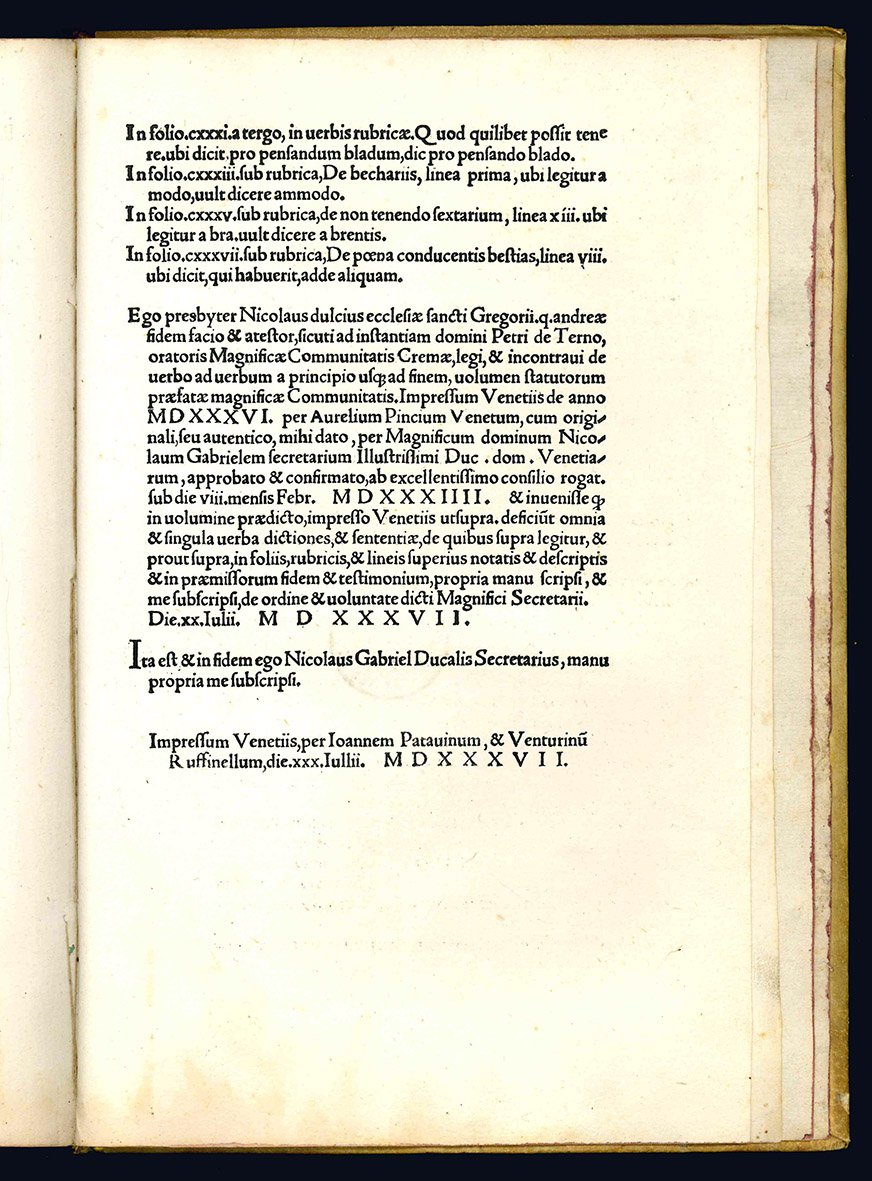 In folio.cxxxi.a tergo, in uerbis rubricæ.Quod quilibet possit tene
re.ubi dicit.pro pensandum bladum,dic pro pensando blado.
In folio.cxxxiii.sub rubrica,De bechariis, linea prima, ubi legitur a
modo,uult dicere ammodo.
In folio.cxxxv.sub rubrica,de non tenendo sextarium, linea xiii. ubi
legitur a bra.uult dicere a brentis.
In folio.cxxxvii.sub rubrica,De pœna conducentis bestias,linea viii.
ubi dicit,qui habuerit,adde aliquam.
Ego presbyter Nicolaus dulcius ecclesiæ sancti Gregorii.q.andreæ
fidem facio & atestor,sicuti ad instantiam domini Petri de Terno,
oratoris Magnificæ Communitatis Cremæ,legi,& incontraui de
uerbo ad uerbum a principio usq; ad finem, uolumen statutorum
præfatæ magnificæ Communitatis.Impressum Venetiis de anno
M D X X X V I. per Aurelium Pincium Venetum, cum origi-
nali,seu autentico, mihi dato, per Magnificum dominum Nico-
laum Gabrielem secretarium Illustrissimi Duc . dom . Venetia-
rum, approbato & confirmato,ab excellentissimo consilio rogat.
sub die viii.mensis Febr. M D X X X I I I I. & inuenisse ꝙ
in uolumine prædicto,impresso Venetiis utsupra. deficiūt omnia
& singula uerba dictiones,& sententiæ,de quibus supra legitur, &
prout supra,in foliis,rubricis,& lineis superius notatis & descriptis
& in præmissorum fidem & testimonium,propria manu scripsi, &
me subscripsi,de ordine & uoluntate dicti Magnifici Secretarii.
Die.xx.Iulii. M D X X X V I I.
Ita est & in fidem ego Nicolaus Gabriel Ducalis Secretarius, manu
propria me subscripsi.
Impressum Venetiis,per Ioannem Patauinum, & Venturinū
Ruffinellum,die.xxx.Iullii. M D X X X V I I.